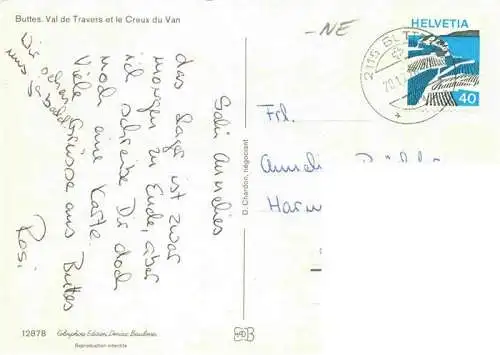 Buttes. Val de Travers et le Creux du Van
-NE
HELVETIA
40
2115 BUTTES
Sali Annelies
das Lager ist zwar
morgen zu Ende, aber
ich schreibe Dir doch
noch eine Karte.
Viele Grüsse aus Buttes
Rosi
D. Chardon, négociant
Frl.
12878
Colorphoto Edition
Reproduction interdite